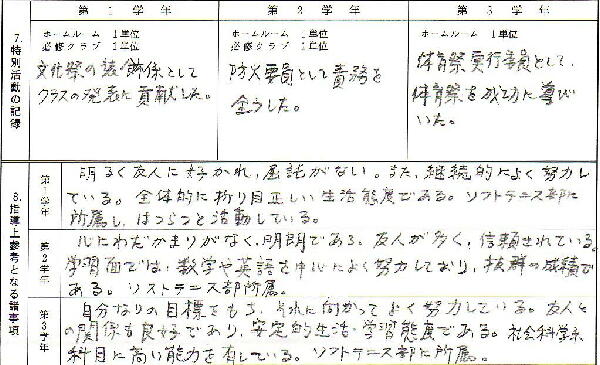 第1学年
第2学年
第3学年
7.特別活動の記録
ホームルーム 1単位
必修クラブ 1単位
文化祭の装飾係として
クラスの発表に貢献した。
ホームルーム 1単位
必修クラブ 1単位
防火委員として責務を
全うした。
ホームルーム 1単位
必修クラブ 1単位
体育祭実行委員として、
体育祭を成功に導びい
いた。
8.指導上参考となる諸事項
第1学年
明るく友人に好かれ、屈託がない。また、継続的によく努力し
ている。全体的に折り目正しい生活態度である。ソフトテニス部に
所属し、はつらつと活動している。
第2学年
心にわだかまりがなく、明朗である。友人が多く、信頼されている。
学習面では、数学や英語を中心によく努力しており、抜群の成績で
ある。ソフトテニス部所属。
第3学年
自分なりの目標をもち、それに向かってよく努力している。友人と
の関係も良好であり、安定的生活・学習態度である。社会科学系
科目に高い能力を有している。ソフトテニス部に所属。